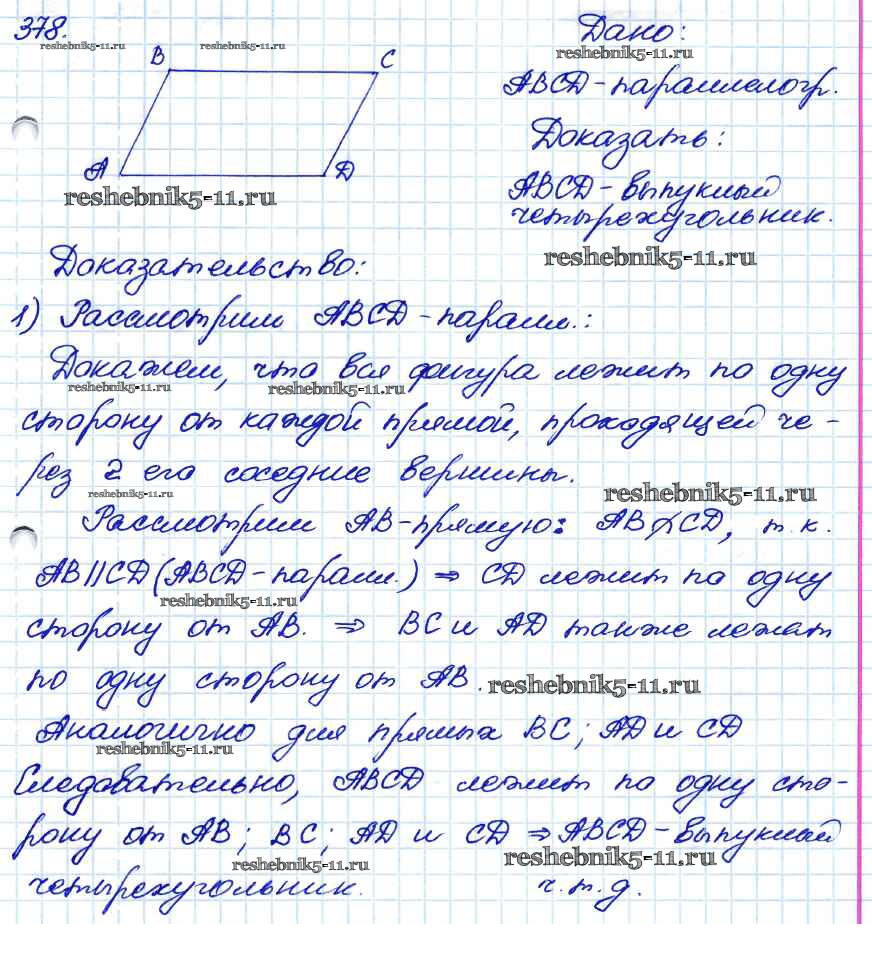 378.
Дано:
reshebnik5-11.ru
reshebnik5-11.ru
reshebnik5-11.ru
B
C
ABCD-параллелогр.
Доказать:
A
D
reshebnik5-11.ru
ABCD-выпуклый
четырехугольник.
reshebnik5-11.ru
Доказательство:
1) Рассмотрим ABCD-паралл.:
Докажем, что вся фигура лежит по одну
reshebnik5-11.ru
reshebnik5-11.ru
сторону от каждой прямой, проходящей че-
рез 2 его соседние вершины.
reshebnik5-11.ru
reshebnik5-11.ru
Рассмотрим AB-прямую: AB∦CD, т.к.
AB||CD (ABCD-паралл.) ⇒ CD лежит по одну
reshebnik5-11.ru
сторону от AB. ⇒ BC и AD также лежат
по одну сторону от AB.
reshebnik5-11.ru
Аналогично для прямых BC; AD и CD
reshebnik5-11.ru
Следовательно, ABCD лежит по одну сто-
рону от AB; BC; AD и CD ⇒ ABCD-выпуклый
reshebnik5-11.ru
reshebnik5-11.ru
четырехугольник. ч.т.д.